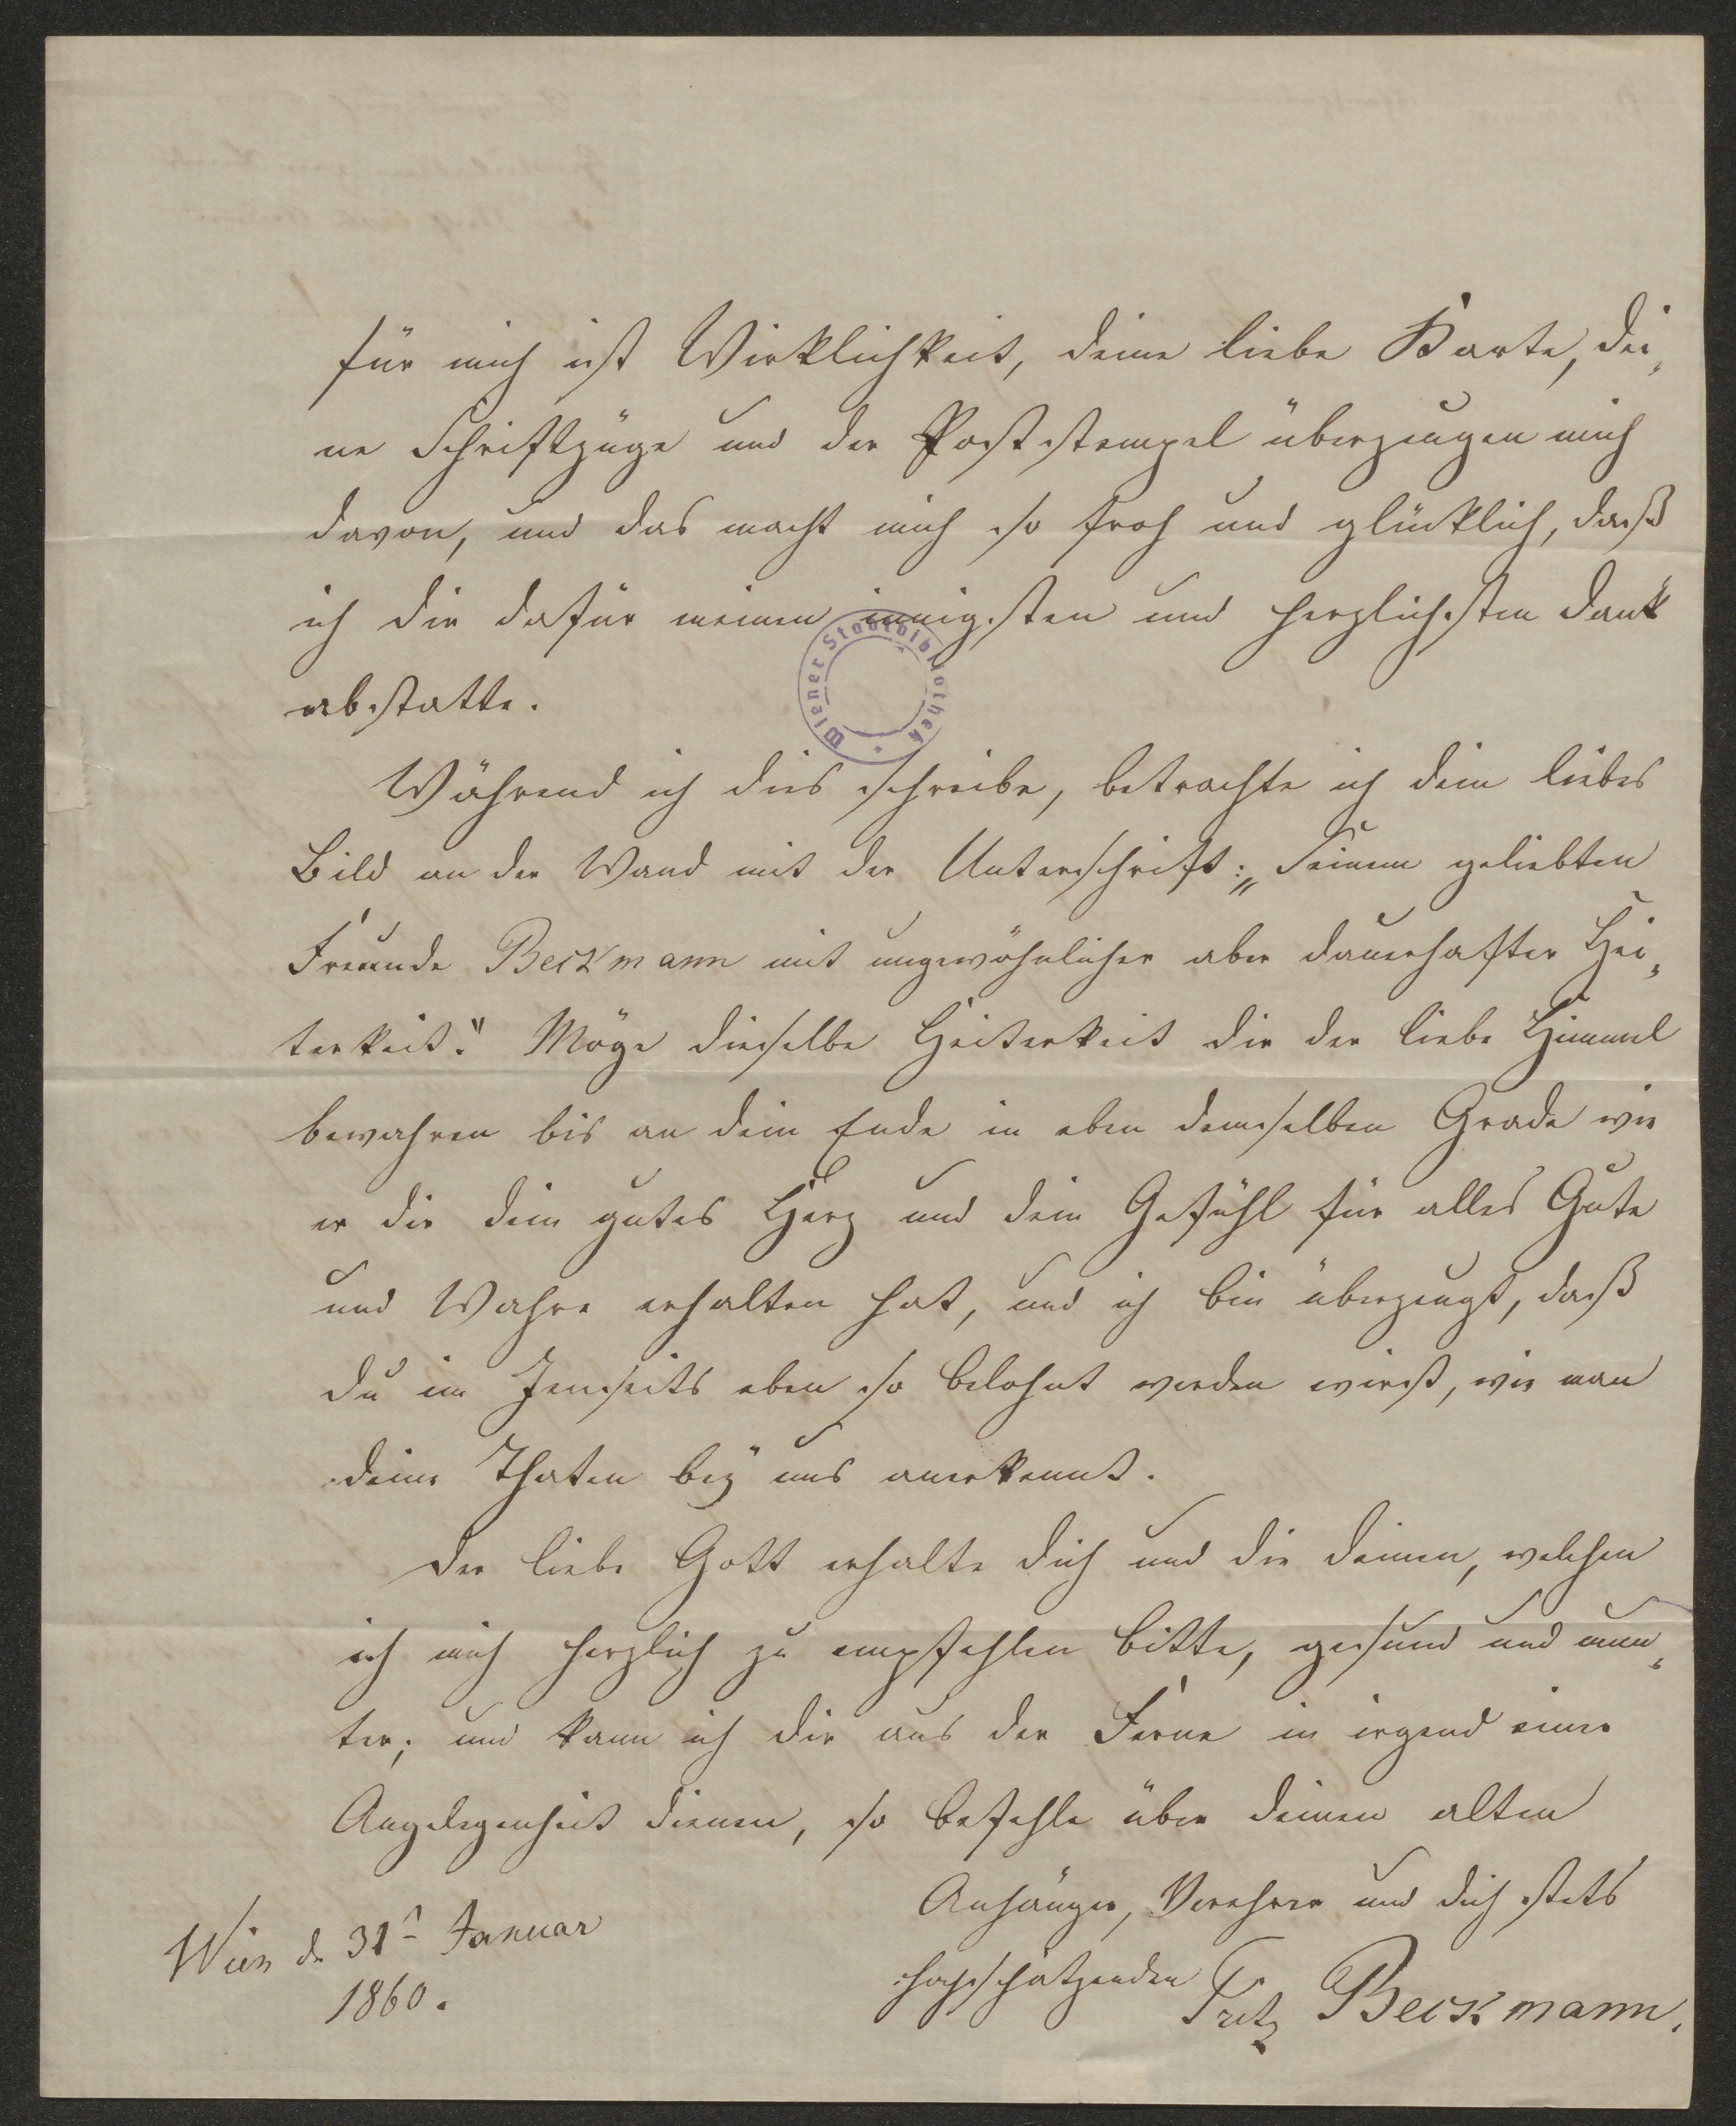 für mich ist Wirklichkeit, deine liebe Karte, dei„
ne Schriftzüge und der Poststempel überzeugen mich
davon, und das macht mich so froh und glücklich, daß
ich dir dafür meinen innigsten und herzlichsten Dank
abstatte.
Wiener Stadtbibliothek
Während ich dies schreibe, betrachte ich dein liebes
Bild an der Wand mit der Unterschrift: „Seinem geliebten
Freunde Beckmann mit ungewöhnlicher aber dauerhafter Hei„
terkeit." Möge dieselbe Heiterkeit dir der liebe Himmel
bewahren bis an dein Ende in eben demselben Grade wie
er dir dein gutes Herz und dein Gefühl für alles Gute
und Wahre erhalten hat, und ich bin überzeugt, daß
du im Jenseits eben so belohnt werden wirst, wie man
deine Thaten bey uns anerkennt.
Der liebe Gott erhalte dich und die deinen, welchen
ich mich herzlich zu empfehlen bitte, gesund und mun„
ter; und kann ich dir aus der Ferne in irgend einer
Angelegenheit dienen, so befehle über deinen alten
Anhänger, Verehrer und dich stets
hochschätzenden Fritz Beckmann.
Wien d. 31t Januar
1860.